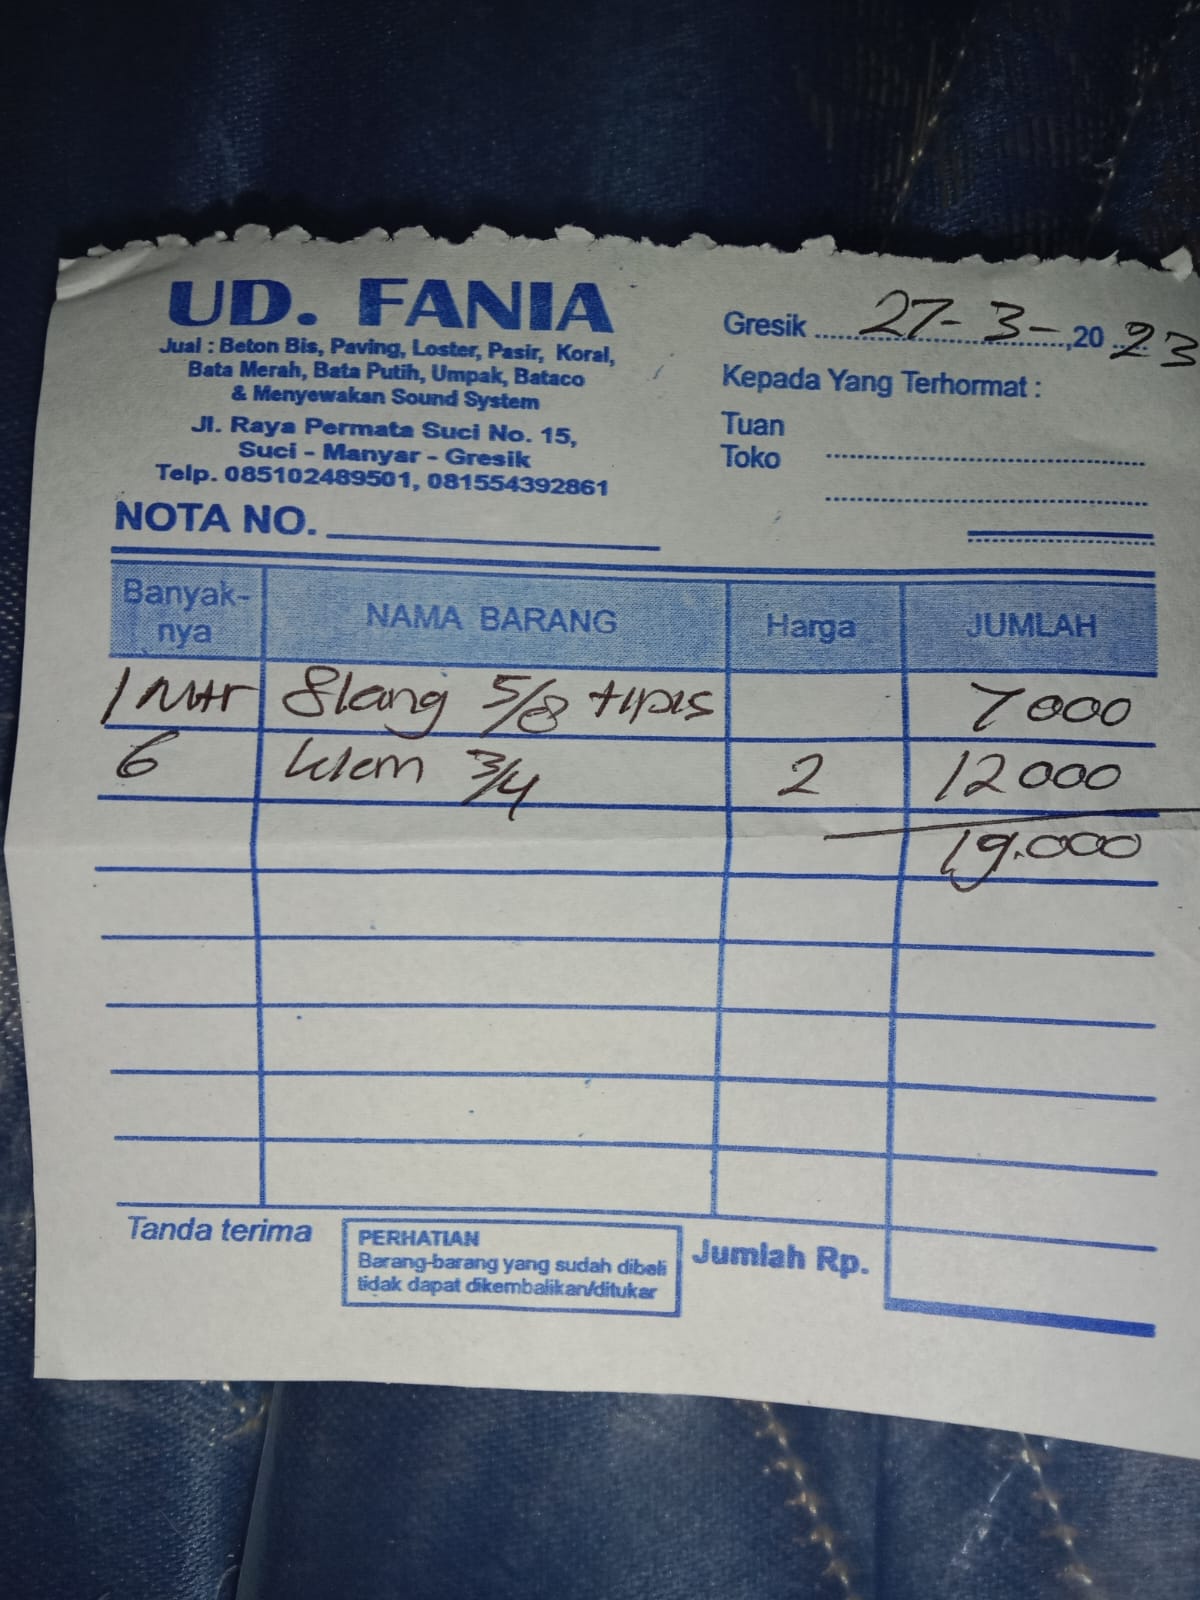 UD. FANIA
Jual : Beton Bis, Paving, Loster, Pasir, Koral,
Bata Merah, Bata Putih, Umpak, Bataco
& Menyewakan Sound System
Jl. Raya Permata Suci No. 15,
Suci - Manyar - Gresik
Telp. 085102489501, 081554392861
NOTA NO.
Gresik 27-3-, 20 23
Kepada Yang Terhormat :
Tuan
Toko
Banyak-nya NAMA BARANG Harga JUMLAH
1 Mtr Slang 5/8 tipis 7000
6 klem 3/4 2 12000
19.000
Tanda terima
PERHATIAN
Barang-barang yang sudah dibeli
tidak dapat dikembalikan/ditukar
Jumlah Rp.